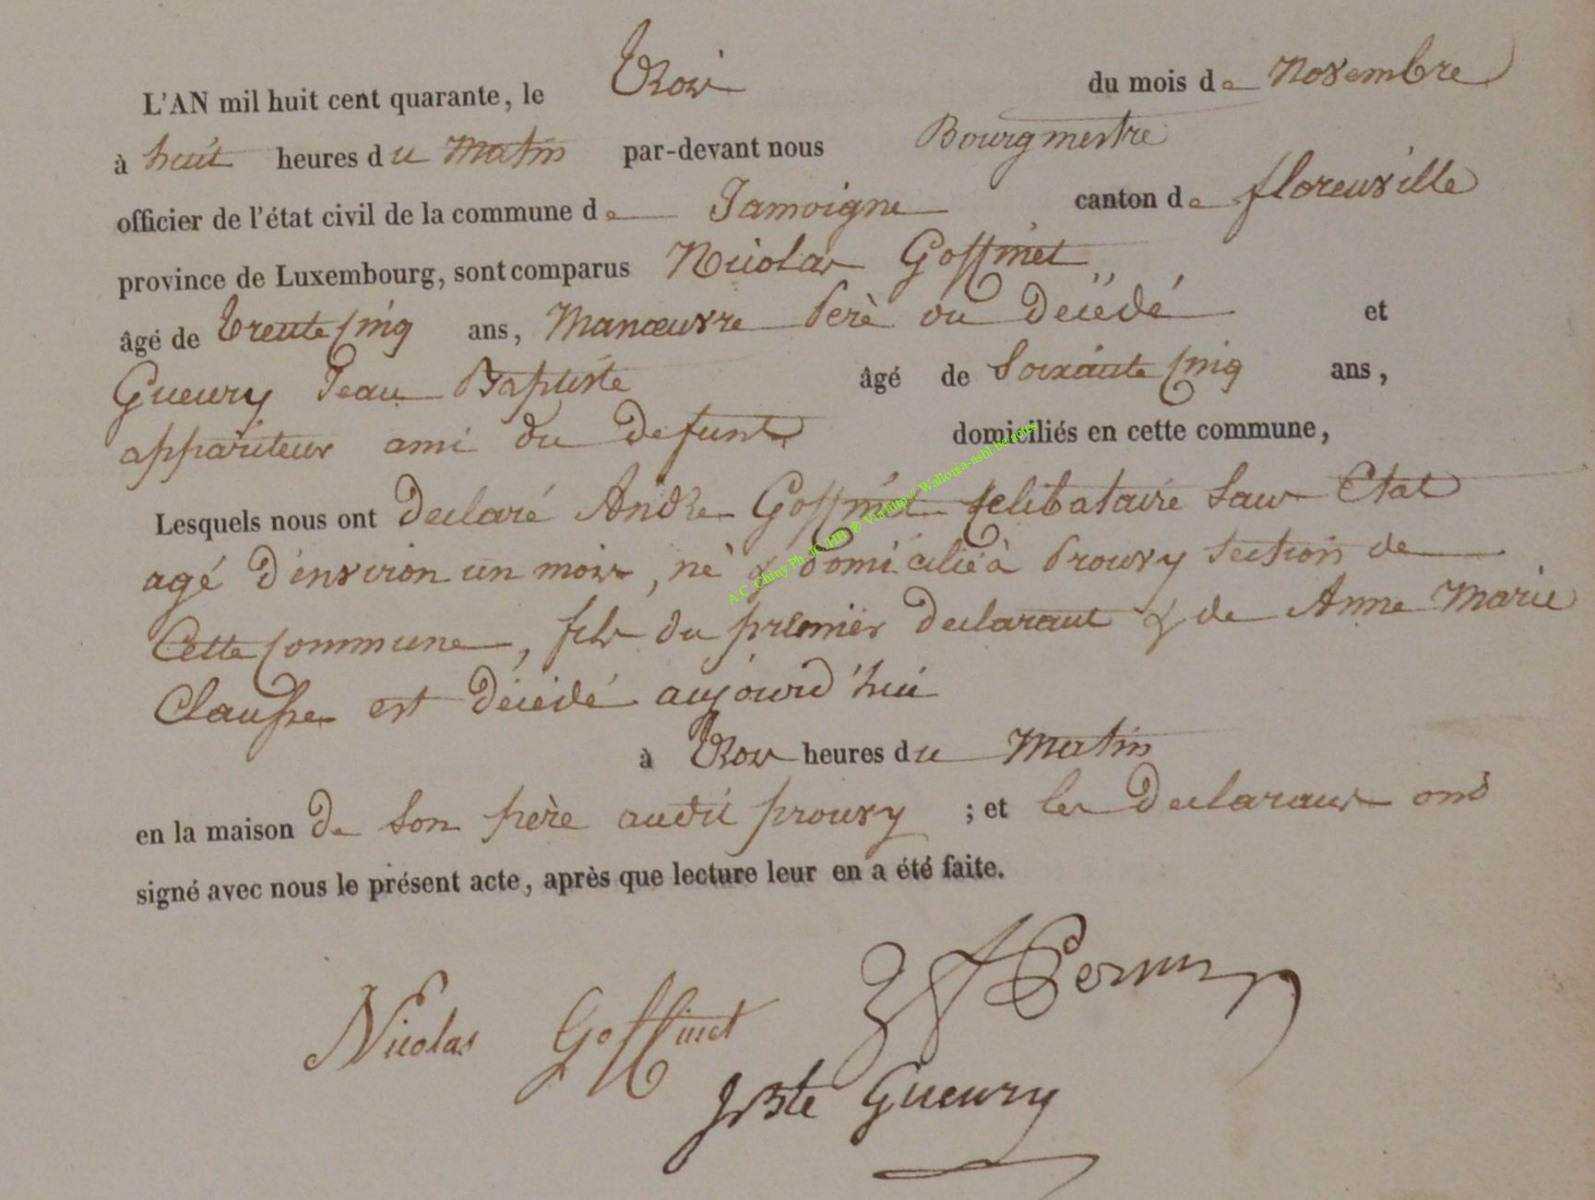 L'AN mil huit cent quarante, le Trois du mois de Novembre
à huit heures du Matin par-devant nous Bourgmestre
officier de l'état civil de la commune de Jamoigne canton de florenville
province de Luxembourg, sont comparus Nicolas Goffinet
âgé de trente Cinq ans, Manœuvre Perè du Décédé et
Gueury Jean Baptiste âgé de Soixante Cinq ans,
appariteur ami du defunt domiciliés en cette commune,
Lesquels nous ont declaré André Goffinet Celibataire Sans Etat
agé d'environ un mois, né & domicilié à Prouvy Section de
Cette Commune, fils du premier declarant & de Anne Marie
Clausse est décédé aujourd'hui
à Trois heures du Matin
en la maison de Son père audit prouvy ; et les declarans ont
signé avec nous le présent acte, après que lecture leur en a été faite.
Nicolas Goffinet
JBte Gueury